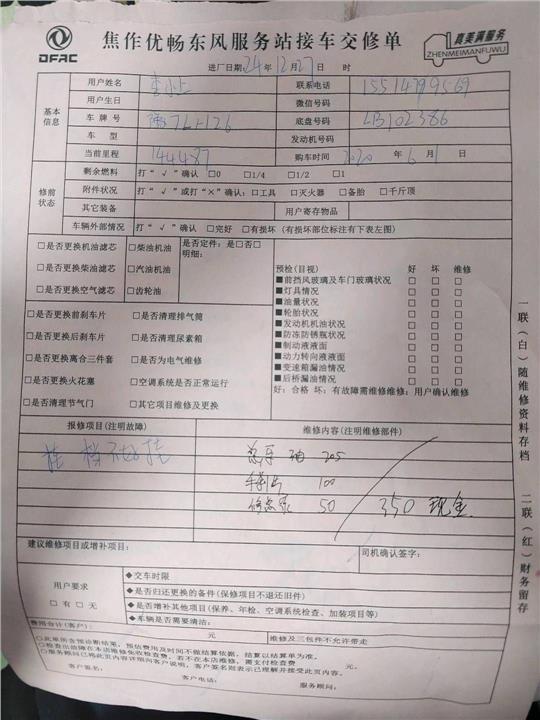 DFAC
焦作优畅东风服务站接车交修单
真美满服务
ZHENMEIMANFUWU
进厂日期:24年12月27日 时
基本信息
用户姓名 李小上 联系电话
用户生日 微信号码
车牌号 底盘号码 LB102386
车型 发动机号码
当前里程 144487 购车时间 2020年6月1日
修前状态
剩余燃料 打“√”确认 □0 □1/4 □1/2 □1
附件状况 打“√”或打“×”确认:□工具 □灭火器 □备胎 □千斤顶
其它装备 用户寄存物品
车辆外部情况 打“√”确认 □完好 □有损坏 (有损坏部位标注有下表左图)
□是否更换机油滤芯 □柴油机油 是否定件: 是□否□
明细:
□是否更换柴油滤芯 □汽油机油
□是否更换空气滤芯 □齿轮油
预检(目视) 好 坏 维修
■前挡风玻璃及车门玻璃状况 □ □ □
■灯具情况 □ □ □
■油量状况 □ □ □
■轮胎状况 □ □ □
■发动机机油状况 □ □ □
■防冻防锈瓶状况 □ □ □
■制动液液面 □ □ □
■动力转向液液面 □ □ □
■变速箱漏油情况 □ □ □
■后桥漏油情况 □ □ □
好:合格 坏:有故障需维修维修:用户确认维修
□是否更换前刹车片 □是否清理排气筒
□是否更换后刹车片 □是否清理尿素箱
□是否更换离合三件套 □是否为电气维修
□是否更换火花塞 □空调系统是否正常运行
□是否清理节气门 □其它项目维修及更换
报修项目(注明故障) 维修内容(注明维修部件)
挂档不好挂 油 205
100
50 350 现金
建议维修项目或增补项目: 司机确认签字:
用户要求
□有 □无
◆交车时限
◆是否归还更换的备件(保修项目不退还旧件)
◆是否增补其他项目(保养、年检、空调系统检查、加装项目等)
◆车辆是否需要清洁:
费用合计(客户): 元 维修及三包件不允许带走
○此单所含预诊断结果,预估费用及时间不做结算依据,结算以结算单为准。
○检查出故障在本店维修免收检查费,若不在本店维修,需支付检查费 元。
○服务顾问已将此页内容详细向客户说明,客户签名则表示已理解并接受此页内容。
客户签名: 客户电话: 服务顾问:
一联(白)随维修资料存档
二联(红)财务留存